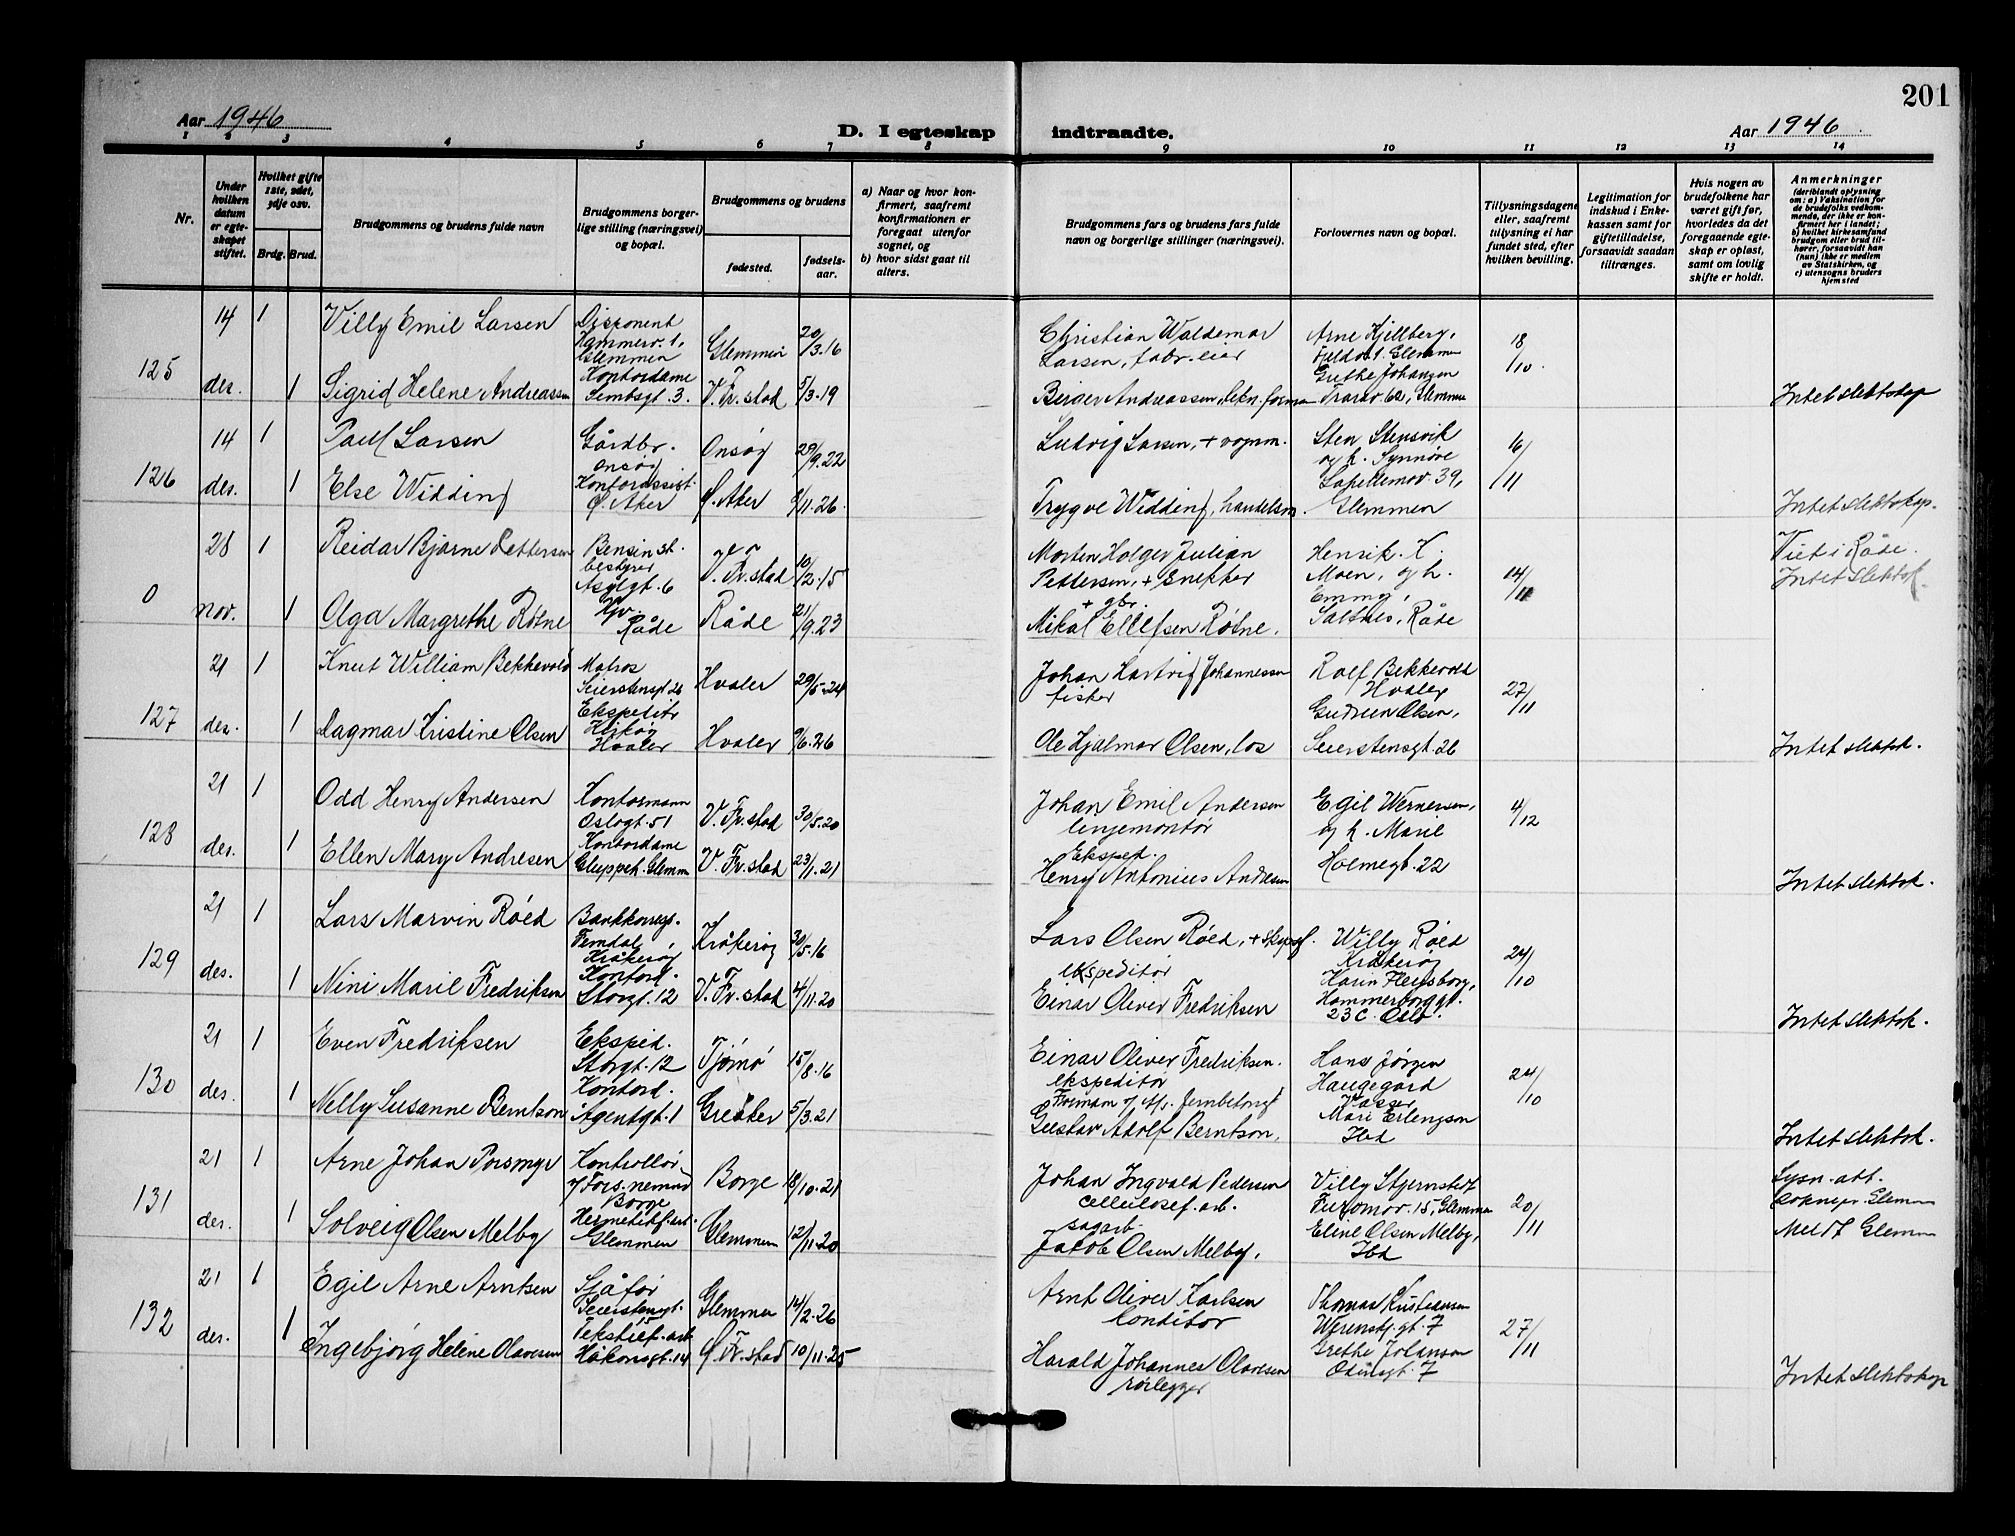 201
Aar 1946
D. I egteskap indtraadte.
Aar 1946
1 2 3 4 5 6 7 8 9 10 11 12 13 14
Nr.
Under hvilken datum er egteskapet stiftet.
Hvilket gifte 1ste, 2det, 3dje osv.
Brdg. Brud.
Brudgommens og brudens fulde navn
Brudgommens borgerlige stilling (næringsvei) og bopæl.
Brudgommens og brudens
fødested.
fødselsaar.
a) Naar og hvor konfirmert, saafremt konfirmationen er foregaat utenfor sognet, og
b) hvor sidst gaat til alters.
Brudgommens fars og brudens fars fulde navn og borgerlige stillinger (næringsvei).
Forlovernes navn og bopæl.
Tillysningsdagene eller, saafremt tillysning ei har fundet sted, efter hvilken bevilling.
Legitimation for indskud i Enkekassen samt for giftetilladelse, forsaavidt saadan tiltrænges.
Hvis nogen av brudefolkene har været gift før, hvorledes da det foregaaende egteskap er opløst, samt om lovlig skifte er holdt.
Anmerkninger
(deriblandt oplysning om: a) Vaksination for de brudefolks vedkommende, der ikke er konfirmert her i landet; b) hvilket kirkesamfund brudgom eller brud tilhører, forsaavidt han (hun) ikke er medlem av Statskirken, og c) utensogns bruders hjemsted
125
14 des.
1
Villy Emil Larsen
Disponent
Hammerv. 1,
Glemmen
Glemmen
20/3.16
Christian Waldemar
Larsen, fabr. eier
Arne Kjellberg,
Glemmen
Grethe Johansen
62, Glemmen
18/10.
1
Sigrid Helene Andreassen
Kontordame
Sembsgt. 3.
V. Fr.stad
5/3.19
Birger Andreassen,
Intet slektskap
126
14 des.
1
Paul Larsen
Gårdbr.
Onsøy
Onsøy
29/9.22
Ludvig Larsen, + vognm.
Sten Stensvik
og h. Synnøve
39,
Glemmen
16/11
1
Else Widding
Kontorassist.
Ø. Aker
Ø. Aker
9/11.26.
Trygve Widding, handelsm.
Intet slektskap.
0
28 nov.
1
Reidar Bjarne Pettersen
Bensinst.
bestyrer
Asylgt. 6
V. Fr.stad
10/2.15
Morten Holger Julian
Pettersen, +
Henrik. K.
Moen, og h.
Emmy,
Saltnes, Råde
14/11
Viet i Råde.
Intet slektsk.
1
Olga Margrethe Rotne
Hjv.
Råde
Råde
21/9.23
+ gbr.
Mikal Ellefsen Rotne.
127
21 des.
1
Knut William Bekkevold
Matros
Seierstensgt 26
Hvaler
29/5.24
Johan Hartvig Johannessen
fisker
Rolf Bekkevold
Hvaler
Gudrun Olsen,
Seierstensgt. 26
27/11
1
Dagmar Kristine Olsen
Ekspeditr
Hvaler
Hvaler
9/6.26
Ole Hjalmar Olsen, los
Intet slektsk.
128
21 des.
1
Odd Henry Andersen
Kontormann
Oslogt. 51
V. Fr.stad
30/5.20
Johan Emil Andersen
linjemontør
Egil Wernersen,
og h. Marie
Holmegt. 22
4/12
1
Ellen Mary Andresen
Kontordame
Gluppeh. Glemm
V. Fr.stad
23/1.21
Eksped.
Henry Antonius Andresen
Intet slektsk.
129
21 des.
1
Lars Marvin Røed
Bankkorresp.
Femdal,
Kråkerøy
Kråkerøy
30/5.16
Lars Olsen Røed, + skipsf.
Willy Røed
Kråkerøy
Karin Flensborg,
Hammerborggt.
23C. Oslo.
24/10
1
Nini Marie Fredriksen
Kontord.
Storgt. 12
V. Fr.stad
4/11.20
ekspeditør
Einar Oliver Fredriksen
Intet slektsk.
130
21 des.
1
Even Fredriksen
Eksped.
Storgt. 12
Tjømø
15/8.16
Einar Oliver Fredriksen.
ekspeditør
Hans Jørgen
Haugegård
Vasser
Mari Erlengson
Ibd
24/10
1
Nelly Susanne Berntson
Kontord.
Agentgt. 1
Greåker
5/3.21
Formann v/ jernbetong
Gustav Adolf Berntson,
Intet slektsk.
131
21 des.
1
Arne Johan Porsmyr
Kontrollør
v/ Fors.nemnd
Borge
Borge
18/10.21
Johan Ingvald Pedersen
cellulosef. arb.
Villy Stjernstedt
Furomov. 15, Glemmen
Eline Olsen Melby,
Ibd
20/11
Lysn. att.
Sokneprs. Glemm
Meldt Glemm
1
Solveig Olsen Melby
Hermetikf. arb.
Glemmen
Glemmen
12/11.20
sagarb.
Jakob Olsen Melby,
132
21 des.
1
Egil Arne Arntsen
Sjåfør
Seierstensgt.
15
Glemmen
14/2.26
Arnt Oliver Karlsen
konditor
Thomas Kristiansen
Werenskj. gt. 7
Grethe Johansen
Odinsgt. 7
27/11
1
Ingebjørg Helene Olavesen
Tekstilf. arb.
Håkonsgt. 14
Ø. Fr.stad
10/11.25
Harald Johannes Olavesen
rørlegger
Intet slektskap